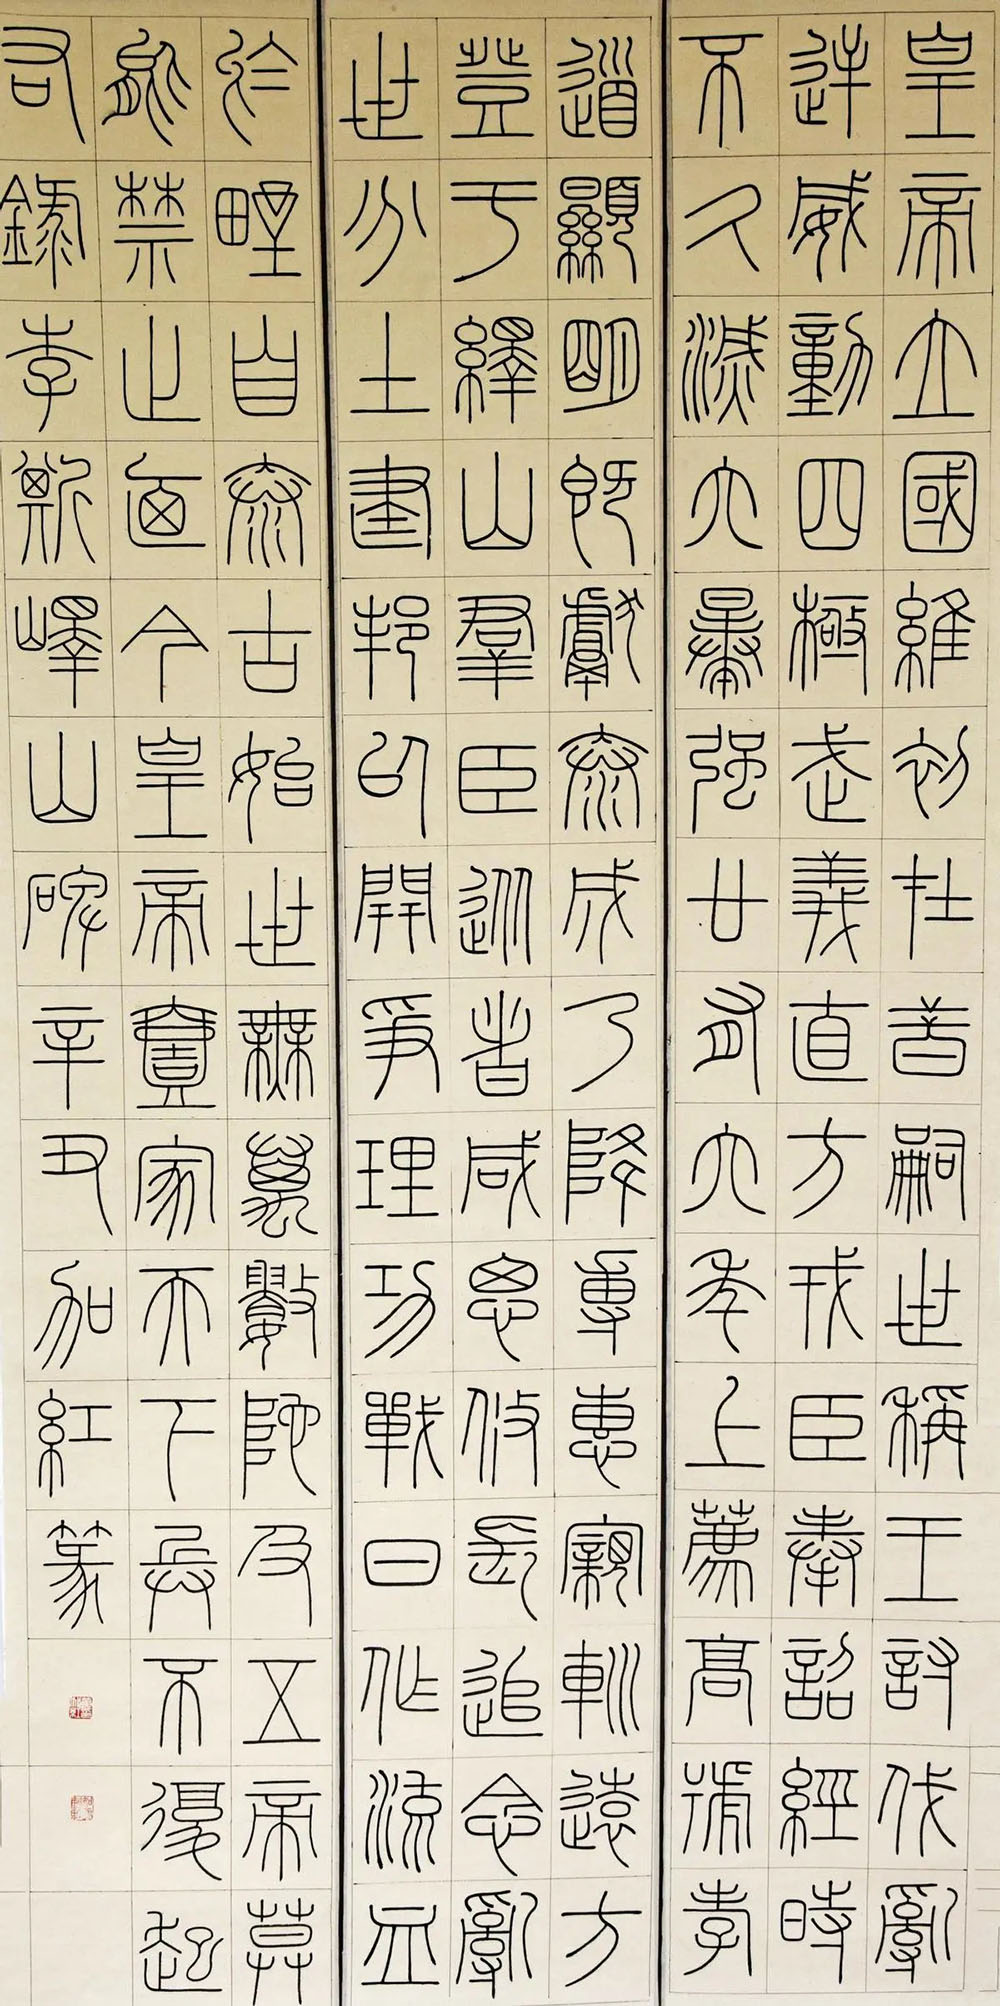 皇帝立國維初在昔嗣世稱王討伐亂
逆威動四極武義直方戎臣奉詔經時
不久滅六暴強廿有六年上薦高號孝
道顯明既獻泰成乃降尃惠親巡遠方
登于繹山羣臣從者咸思攸長追念亂
世分土建邦以開爭理功戰日作流血
於野自泰古始世無萬數陀及五帝莫
能禁止廼今皇帝壹家天下兵不復起
右錄李斯嶧山碑辛丑加紅篆